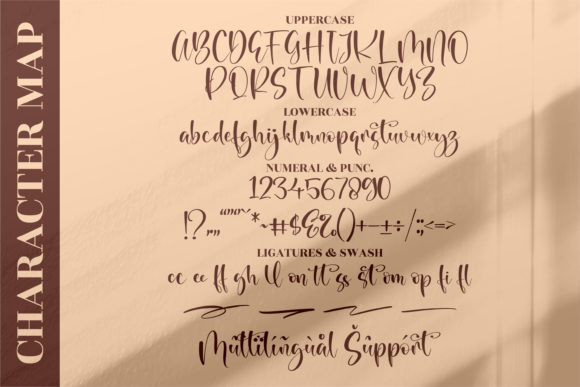 CHARACTER MAP
UPPERCASE
ABCDEFGHIJKLMNO
PQRSTUVWXYZ
LOWERCASE
abcdefghijklmnopqrstuvwxyz
NUMERAL & PUNC.
1234567890
LIGATURES & SWASH
cc ee ff gh ll on tt ss st om op fi fl